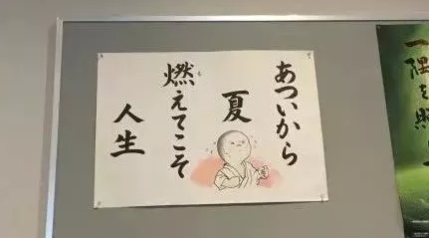 あついから
夏
燃えてこそ
も
人生
一隅を照